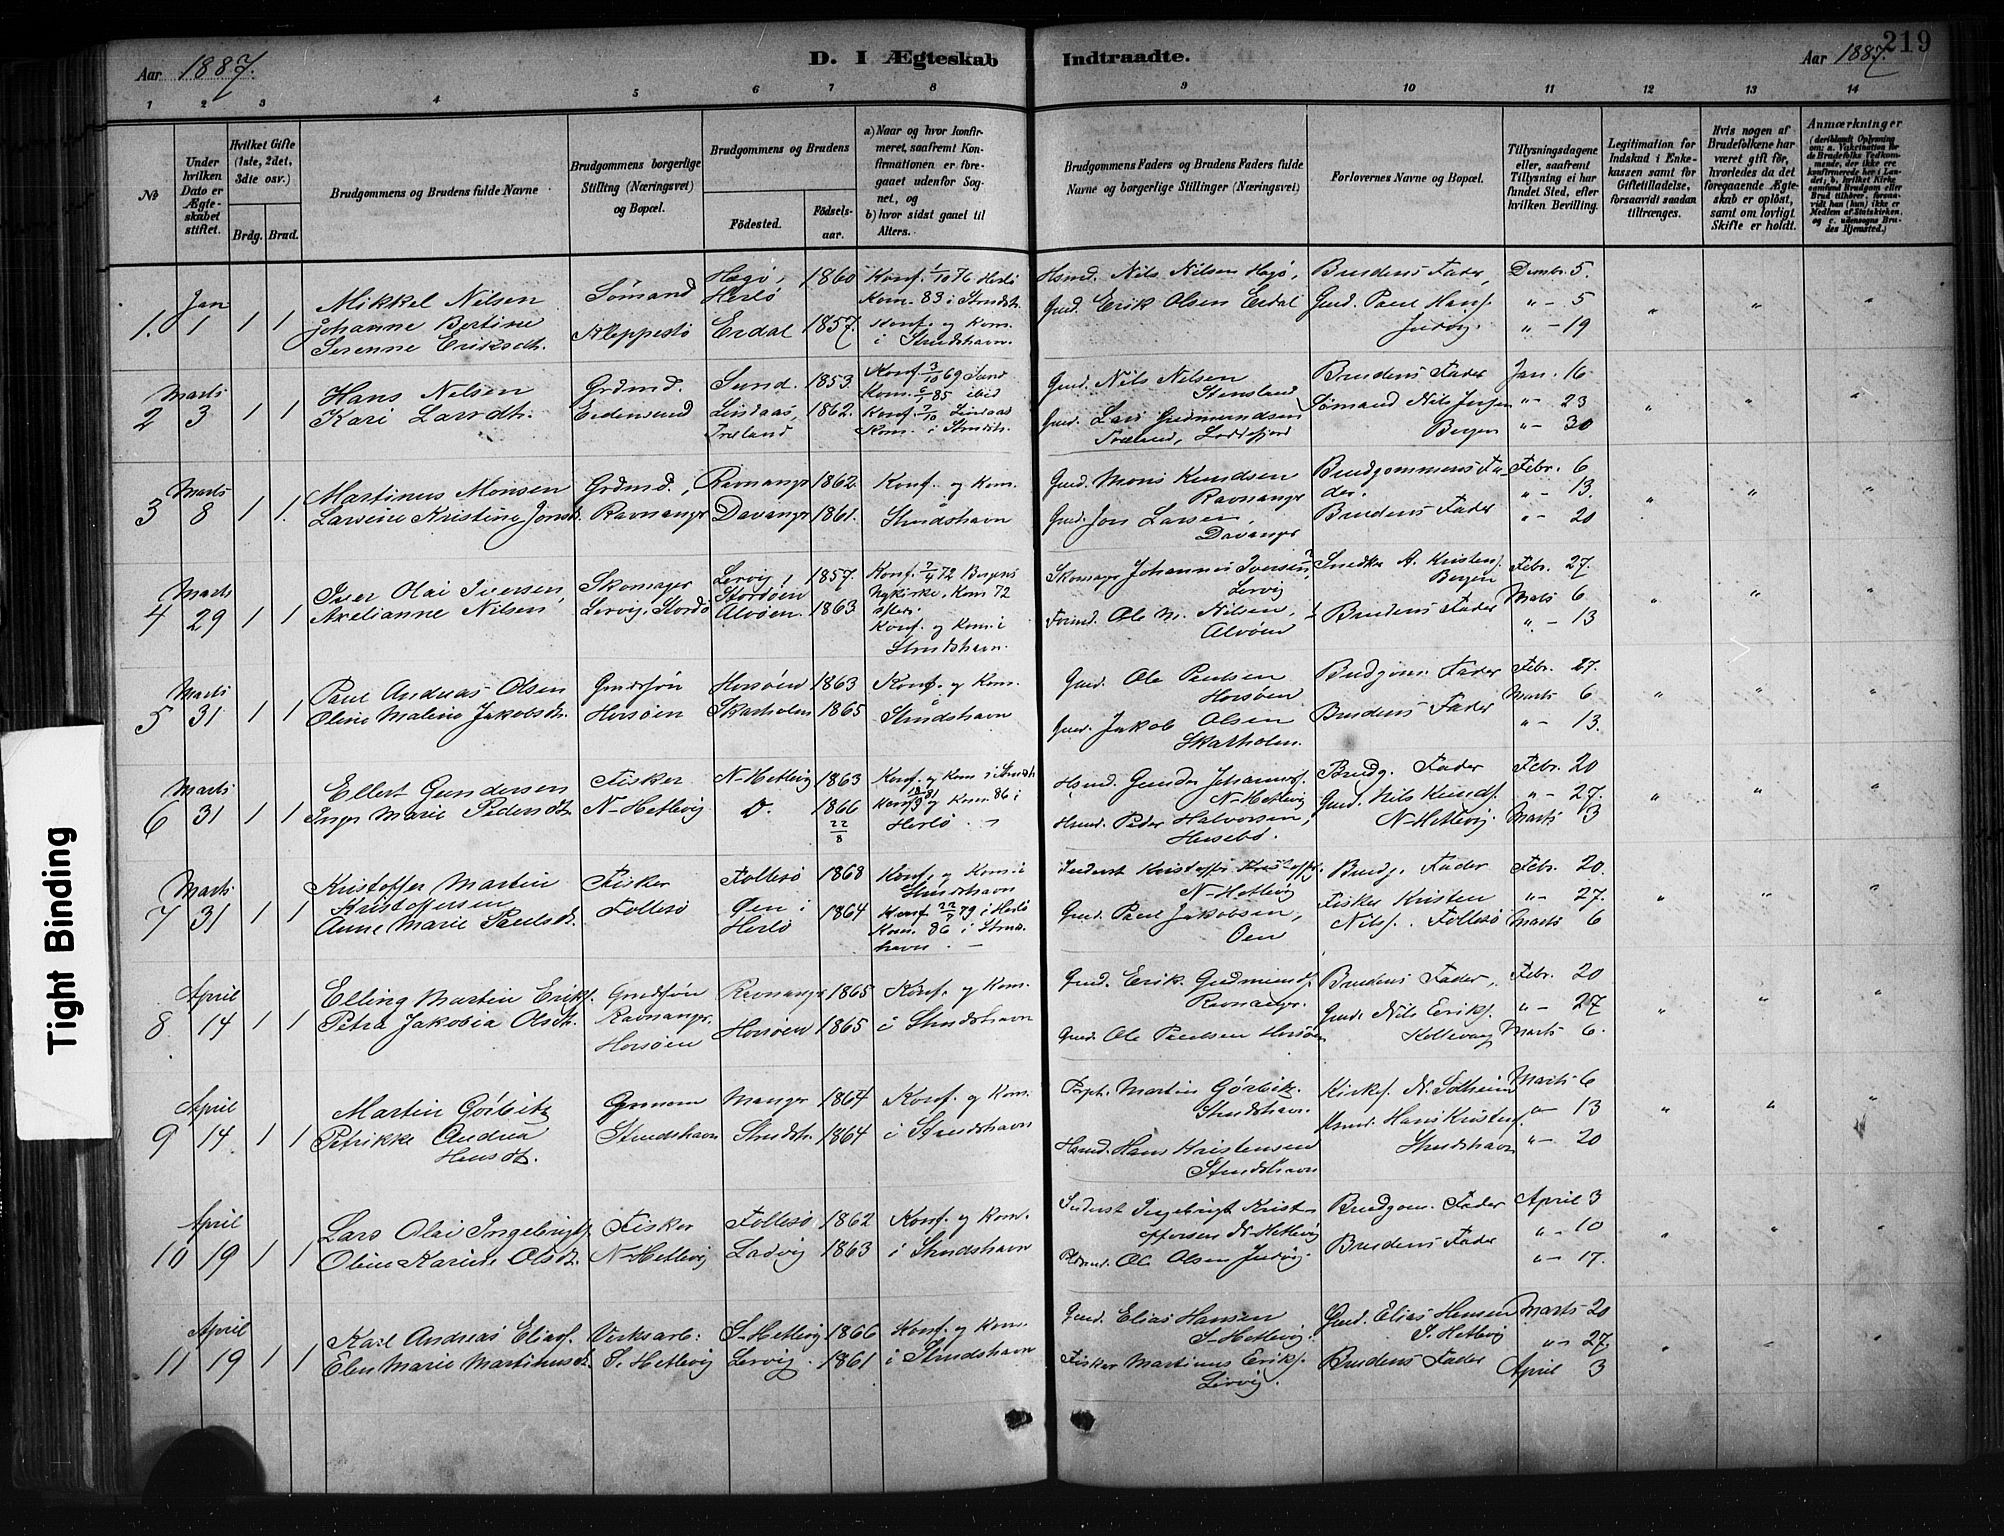 Aar 1887.
D. I Ægteskab Indtraadte.
Aar 1887.
219
1 2 3 4 5 6 7 8 9 10 11 12 13 14
№
Under hvilken Dato er Ægteskabet stiftet.
Hvilket Gifte (1ste, 2det, 3die osv.)
Brdg. Brud.
Brudgommens og Brudens fulde Navne
Brudgommens borgerlige Stilling (Næringsvei) og Bopæl.
Brudgommens og Brudens
Fødested.
Fødselsaar.
a) Naar og hvor konfirmeret, saafremt Konfirmationen er foregaaet udenfor Sognet, og
b) hvor sidst gaaet til Alters.
Brudgommens Faders og Brudens Faders fulde Navne og borgerlige Stillinger (Næringsvei)
Forlovernes Navne og Bopæl.
Tillysningsdagene eller, saafremt Tillysning ei har fundet Sted, efter hvilken Bevilling.
Legitimation for Indskud i Enkekassen samt for Giftetilladelse, forsaavidt saadan tiltrænges.
Hvis nogen af Brudefolkene har været gift før, hvorledes da foregaaende Ægteskab er opløst, samt om lovligt Skifte er holdt.
Anmærkninger (deriblandt Oplysning om: a. Vakcination for de Brudefolks Vedkommende, der ikke ere konfirmerede her i Landet; b. hvilket Kirkesamfund Brudgom eller Brud tilhører, forsaavidt han (hun) ikke er Medlem af Statskirken, og c. udensogns Brudes Hjemsted.)
1. Jan 1 1 1
Mikkel Nilsen
Johanne Bertine
Serenne Eriksdtr.
Sømand
Kleppestø
Hægø, Herlø 1860
Erdal 1857.
Konf. 1/10 76 Herlø
Kom. 83 i Strudsh.
Konf. og Kom. i Strudshavn.
Hsmd. Nils Nilsen Hægø,
Gmd. Erik Olsen Erdal
Brudens Fader,
Gmd. Paul Hans.
Juvig.
Dembr. 5.
" - 5
" - 19
2 Marts 3 1 1
Hans Nilsen
Kari Larsdtr.
Grdmd.
Eidersund
Sund. 1853.
Lindaas, 1862.
Træland
Konf. 3/10 69 Sund
Kom. 6/1 85 ibid
Konf. 7/10 Lindaas
Kom. i Strudsh.
Gmd. Nils Nilsen
Stensland
Gmd. Lars Gudmundsen
Træland, Loddefjord
Brudens Fader
Sømand Nils Jensen
Bergen
Jan. 16
" - 23
" - 30
3 Marts 8 1 1.
Martinus Monsen
Larsine Kristine Jonsd.
Grdmd.,
Ravnanger
Ravnanger 1862.
Davanger 1861.
Konf. og Kom.
Strudshavn
Gmd. Mons Knudsen
Ravnanger
Gmd. Jon Larsen,
Davanger
Brudgommens Fader.
Brudens Fader
Febr. 6
" - 13.
" - 20
4 Marts 29 1 1
Iver Olai Iversen,
Axelianne Nilsen
Skomager
Lervig, Stordø
Lervig, 1857.
Stordøen
Alvøen. 1863
Konf. 7/4 72 Bergens
Nykirke. Kom 72
Konf. og Kom. i
Strudshavn.
Skomager Johannes Iversen,
Lervig
Formd. Ole M. Nilsen,
Alvøen
Snedker A. Kristens.
Bergen
Brudens Fader
Febr. 27.
Marts 6
" - 13
5 Marts 31 1 1
Paul Andreas Olsen
Oline Maline Jakobsdtr.
Grmdsøn
Horsøen
Horsøen 1863
Skarholm 1865
Konf. og Kom.
Strudshavn
Gmd. Ole Paulsen
Horsøen
Gmd. Jakob Olsen
Skarholm.
Brudgom. Fader
Brudens Fader
Febr. 27.
Marts 6
" - 13.
6 Marts 31 1 1
Ellert Gundersen
Inger Marie Pedersdtr.
Fisker
N-Hetlevig
N-Hetlevig 1863
D. 1866 22/8
Konf. og Kom i Strudsh
Kom. 86 i
Herlø
Hsmd. Gunder Johannes.
N-Hetlevig
Hsmd. Peder Halvorsen,
Husebø.
Brudg. Fader
Gmd. Nils Knuds.
N-Hetlevig.
Febr. 20
" - 27.
Marts 3
7 Marts 31 1 1
Kristoffer Martin
Kristoffersen
Anne Marie Paulsd.
Fisker
Follesø
Follesø 1868
Øen i 1864
Herlø
Konf. og Kom. i
Strudshavn
Konf 22/9 79 i Herlø
Kom. 86 i Strudshavn.
Inderst Kristoffer Kristoffers.
N-Hetlevig
Gmd. Paul Jakobsen,
Øen
Brudg. Fader
Fisker Kristen
Nils. Follesø
Febr. 20.
" - 27.
Marts 6
8 April 14 1 1
Elling Martin Eriks.
Petra Jakobia Olsdtr.
Grmdsøn
Ravnanger.
Horsøen
Ravnanger 1865
Horsøen 1865
Konf. og Kom.
i Strudshavn
Gmd. Erik Gudmunds.
Ravnanger.
Gmd. Ole Paulsen Horsøen
Brudens Fader,
Gmd. Nils Eriks.
Kollevaag
Febr. 20
" - 27
Marts 6.
9 April 14 1 1
Martin Görbitz
Petrikke Andrea
Hansdt.
Strudshavn
Manger 1864
Strudsh. 1864
Konf. og Kom.
i Strudshavn
Martin Görbitz.
Strudshavn.
Hsmd. Hans Kristensen
Strudshavn
Kirkes. N. Solheim
Hsmd. Hans Kristens.
Strudshavn
Marts 6
" - 13
" - 20
10 April 19 1 1
Lars Olai Ingebrigts.
Oline Karine Olsdt.
Fisker
N-Hetlevig
Follesø 1862
Ladvig 1863
Konf. og Kom.
i Strudshavn
Inderst Ingebrigt Kristoffersen N-Hetlevig
Ole Olsen Juvig.
Brudgom. Fader
Brudens Fader
April 3
" - 10
" - 17.
11 April 19 1 1
Karl Andreas Elias.
Elen Marie Martinusd.
Verksarb:
S. Hetlevig
S-Hetlevig 1866
Lervig. 1861
Konf. og Kom.
i Strudshavn
Gmd. Elias Hansen
S-Hetlevig.
Fisker Martinus Eriks.
Lervig.
Gmd. Elias Hansen
S. Hetlevig
Brudens Fader
Marts 20
" - 27.
April 3
Tight Binding